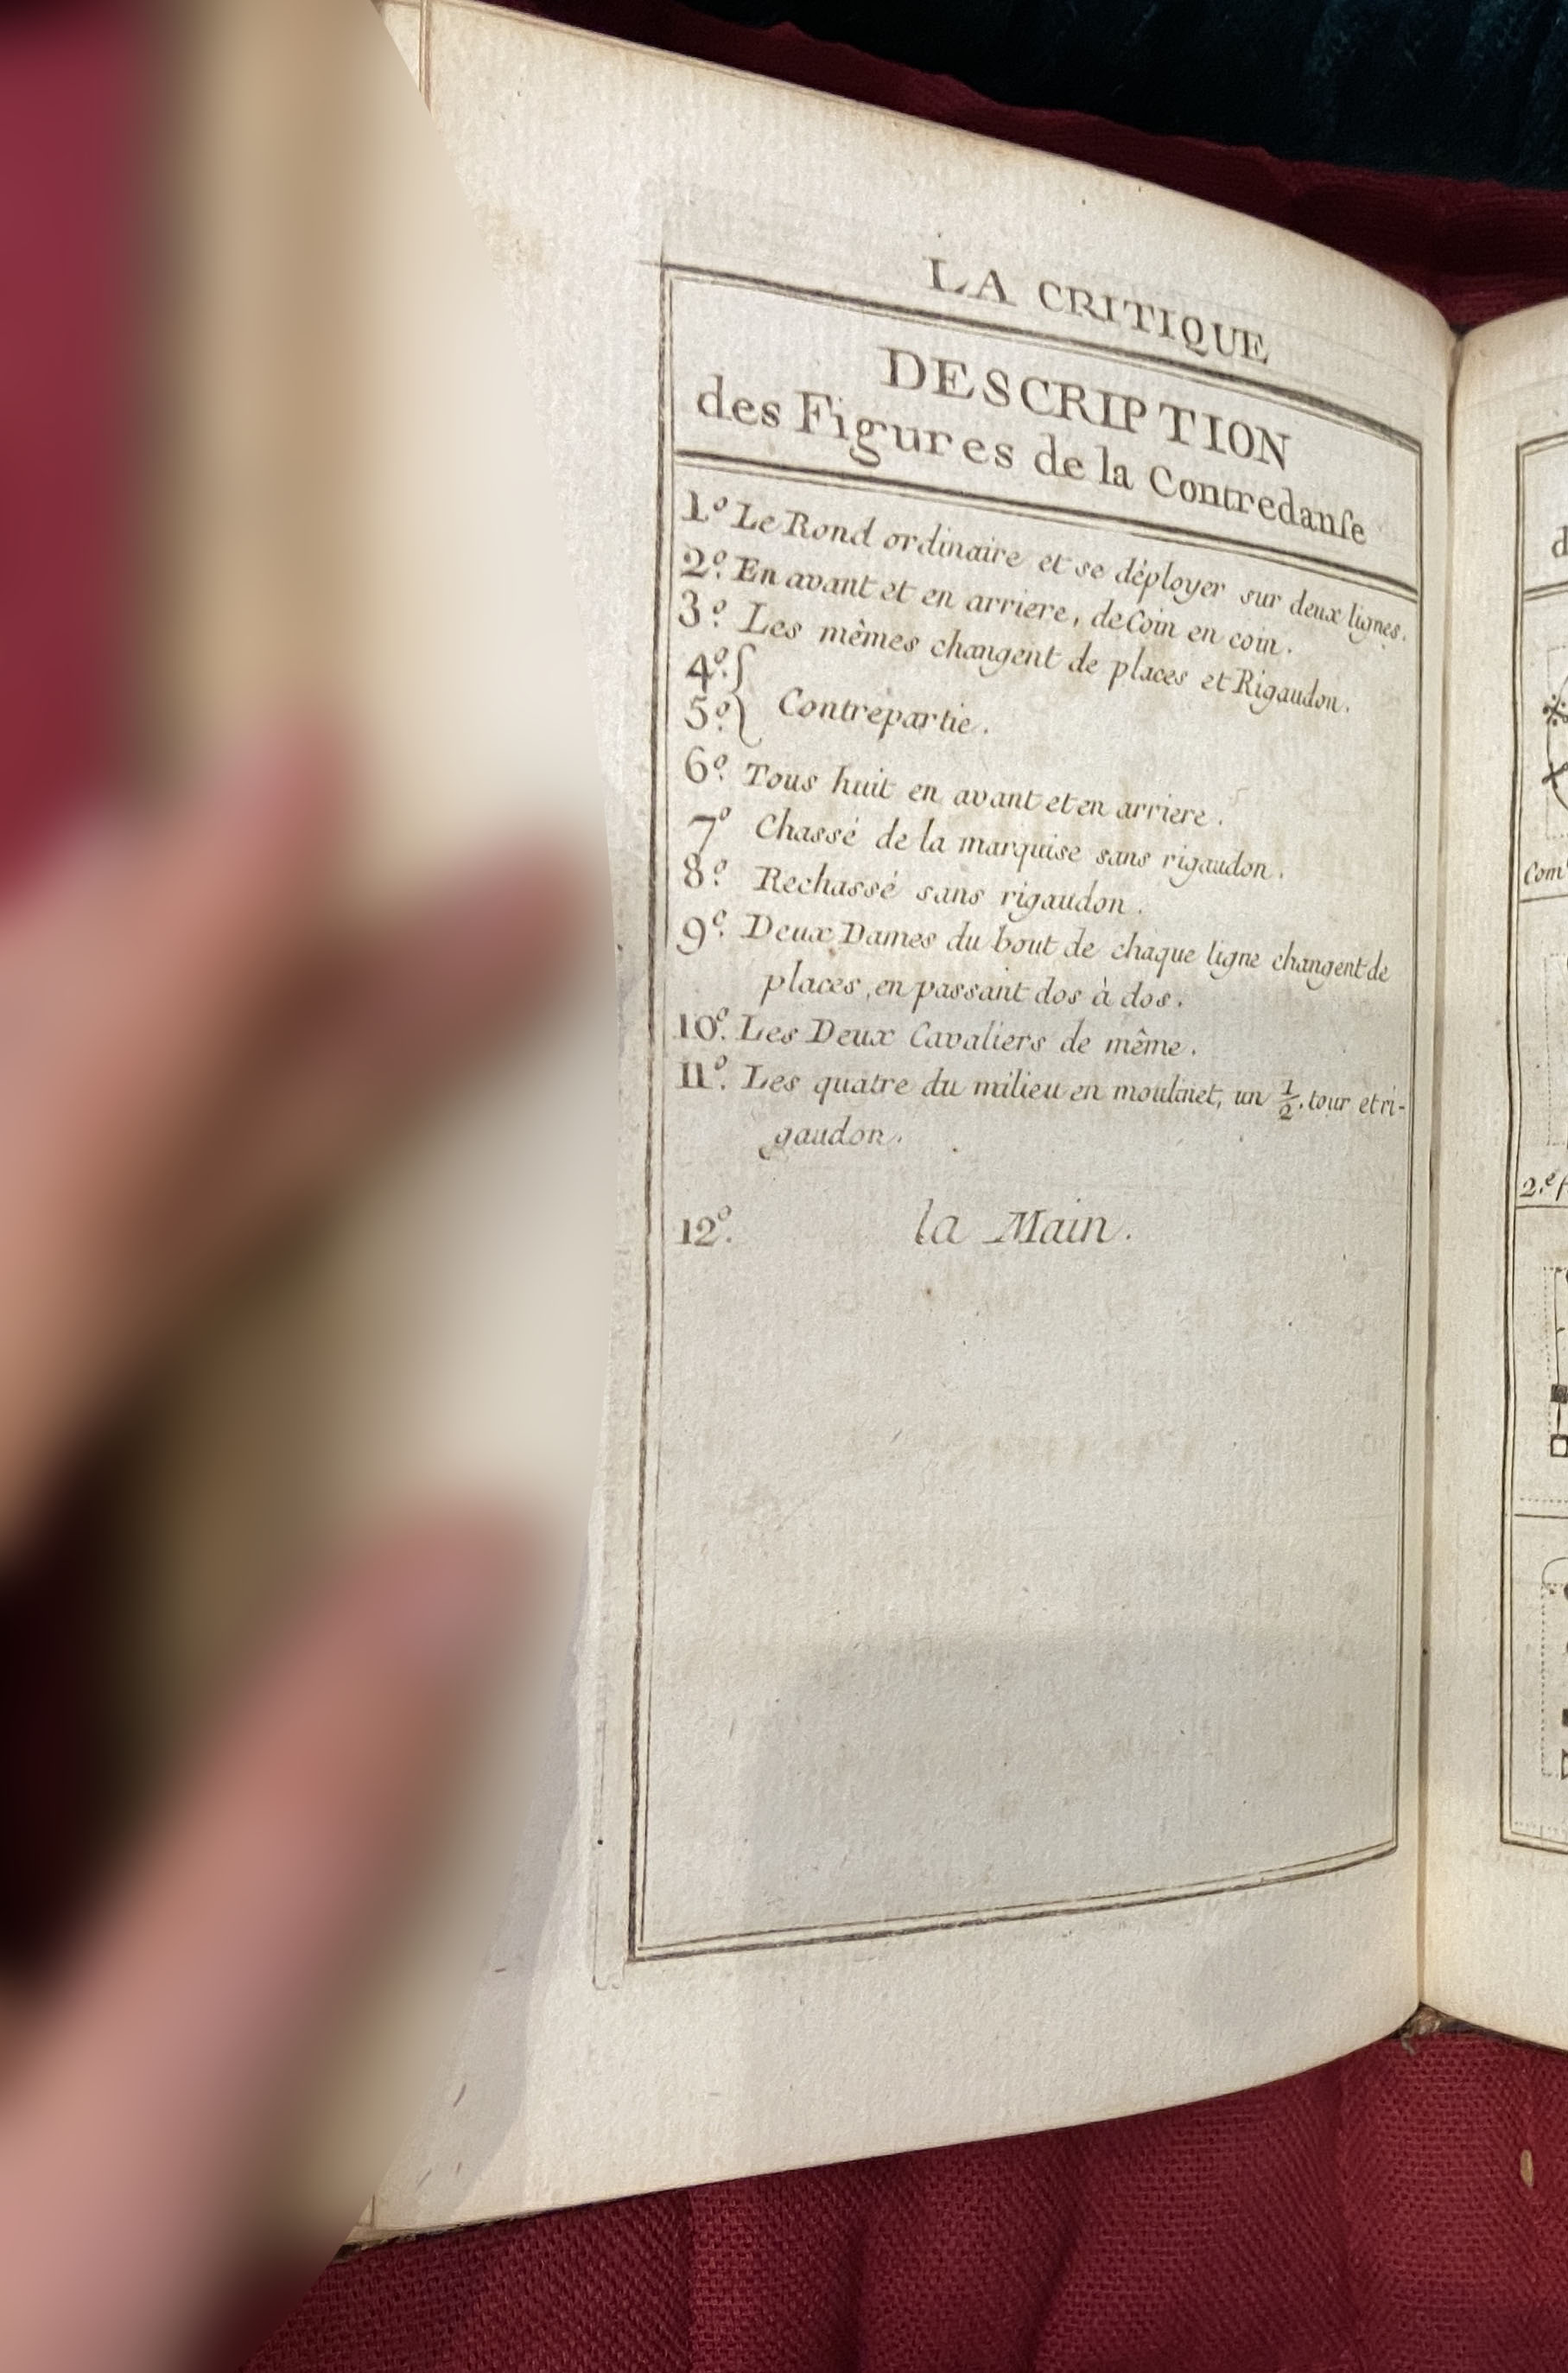 LA CRITIQUE
DESCRIPTION
des Figures de la Contredanſe
1º Le Rond ordinaire et se déployer sur deux lignes.
2º. En avant et en arriere, de Coin en coin.
3º. Les mêmes changent de places et Rigaudon.
4º.
5º. Contrepartie.
6º. Tous huit en avant et en arriere.
7º Chassé de la marquise sans rigaudon.
8º. Rechassé sans rigaudon.
9º. Deux Dames du bout de chaque ligne changent de
places, en passant dos à dos.
10º. Les Deux Cavaliers de même.
11º. Les quatre du milieu en moulinet, un 1/2. tour et ri-
gaudon.
12º. la Main.